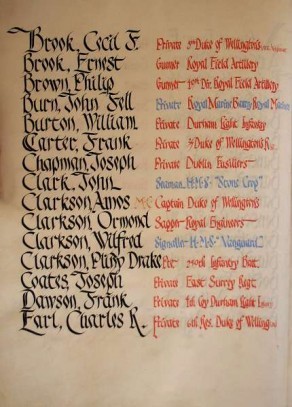 Brook, Cecil F. Private 3rd Duke of Wellington's
Brook, Ernest Gunner Royal Field Artillery
Brown, Philip Gunner Div. Royal Field Artillery
Burn, John Fell Private Royal Marine
Burton, William Private Durham Light Infantry
Carter, Frank Private Duke of Wellington's
Chapman, Joseph Private Dublin Fusiliers
Clark, John Seaman, H.M.S. "Stone Crop"
Clarkson, Amos M.C. Captain Duke of Wellington's
Clarkson, Ormond Sapper Royal Engineers
Clarkson, Wilfred Signaller H.M.S. "Vanguard"
Clarkson, Drake Infantry Batt.
Coates, Joseph Private East Surrey Regt
Dawson, Frank Private Coy Durham Light
Earl, Charles R. Private 6th Res. Duke of